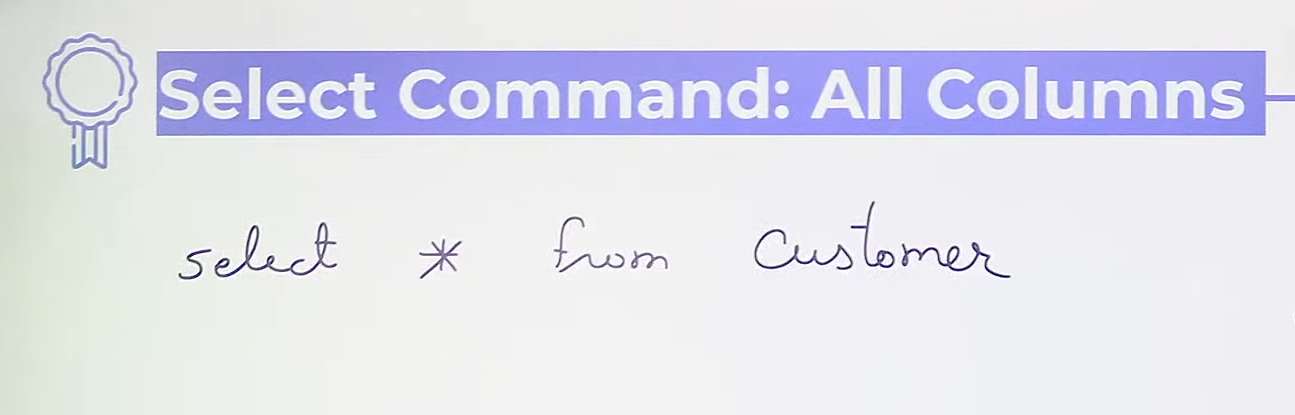 Select Command: All Columns
select * from Customer